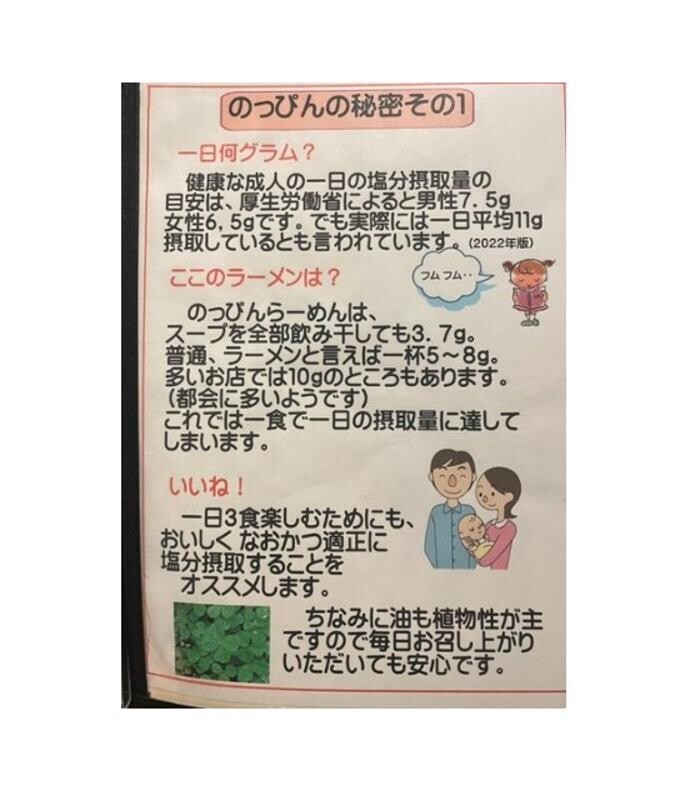 のっぴんの秘密その1
一日何グラム？
健康な成人の一日の塩分摂取量の
目安は、厚生労働省によると男性7.5g
女性6,5gです。でも実際には一日平均11g
摂取しているとも言われています。(2022年版)
ここのラーメンは？
フムフム‥
のっぴんらーめんは、
スープを全部飲み干しても3.7g。
普通、ラーメンと言えば一杯5～8g。
多いお店では10gのところもあります。
(都会に多いようです)
これでは一食で一日の摂取量に達して
しまいます。
いいね！
一日3食楽しむためにも、
おいしくなおかつ適正に
塩分摂取することを
オススメします。
ちなみに油も植物性が主
ですので毎日お召し上がり
いただいても安心です。